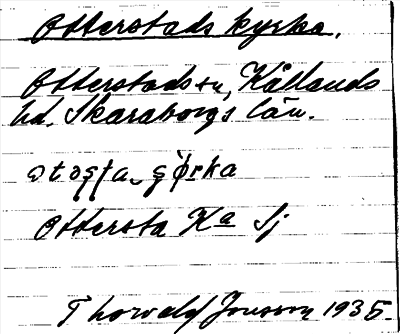 Otterstads kyrka.
Otterstads sn, Kållands
hd. Skaraborgs län.
Ottersta Ka Sj
Thorvald Jonsson 1935.